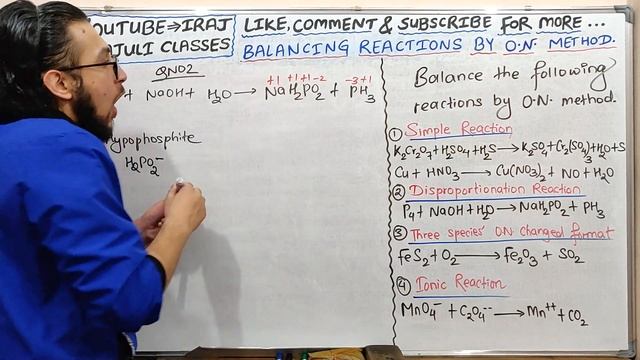 OUTUBE⇒IRAJ
NJULI CLASSES
LIKE, COMMENT & SUBSCRIBE FOR MORE ...
BALANCING REACTIONS BY O.N. METHOD.
QNO2
+1 +1 +1 -2 -3 +1
+ NaOH + H₂O ⟶ NaH₂PO₂ + PH₃
hypophosphite
H₂PO₂⁻
Balance the following
reactions by O.N. method.
① Simple Reaction
K₂Cr₂O₇ + H₂SO₄ + H₂S ⟶ K₂SO₄ + Cr₂(SO₄)₃ + H₂O + S
Cu + HNO₃ ⟶ Cu(NO₃)₂ + NO + H₂O
② Disproportionation Reaction
P₄ + NaOH + H₂O ⟶ NaH₂PO₂ + PH₃
③ Three species' ON changed format
FeS₂ + O₂ ⟶ Fe₂O₃ + SO₂
④ Ionic Reaction
MnO₄⁻ + C₂O₄⁻⁻ ⟶ Mn⁺⁺ + CO₂